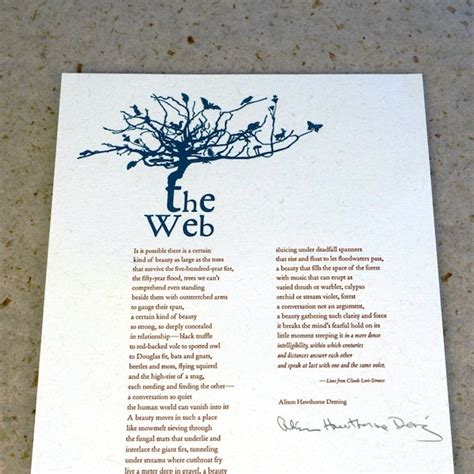 the
Web
Is it possible there is a certain
kind of beauty as large as the trees
that survive the five-hundred-year fire,
the fifty-year flood, trees we can't
comprehend even standing
beside them with outstretched arms
to gauge their span,
a certain kind of beauty
so strong, so deeply concealed
in relationship— black truffle
to red-backed vole to spotted owl
to Douglas fir, bats and gnats,
beetles and moss, flying squirrel
and the high-rise of a snag,
each needing and feeding the other—
a conversation so quiet
the human world can vanish into it?
A beauty moves in such a place
like snowmelt sieving through
the fungal mats that underlie and
interlace the giant firs, tunneling
under streams where cutthroat fry
live a meter deep in gravel, a beauty
sluicing under deadfall spanners
that rise and float to let floodwaters pass,
a beauty that fills the space of the forest
with music that can erupt as
varied thrush or warbler, calypso
orchid or stream violet, forest
a conversation not an argument,
a beauty gathering such clarity and force
it breaks the mind's fearful hold on its
little moment steeping it in a more dense
intelligibility, within which centuries
and distances answer each other
and speak at last with one and the same voice.
— Lines from Claude Levi-Strauss
Alison Hawthorne Deming
Alison Hawthorne Deming